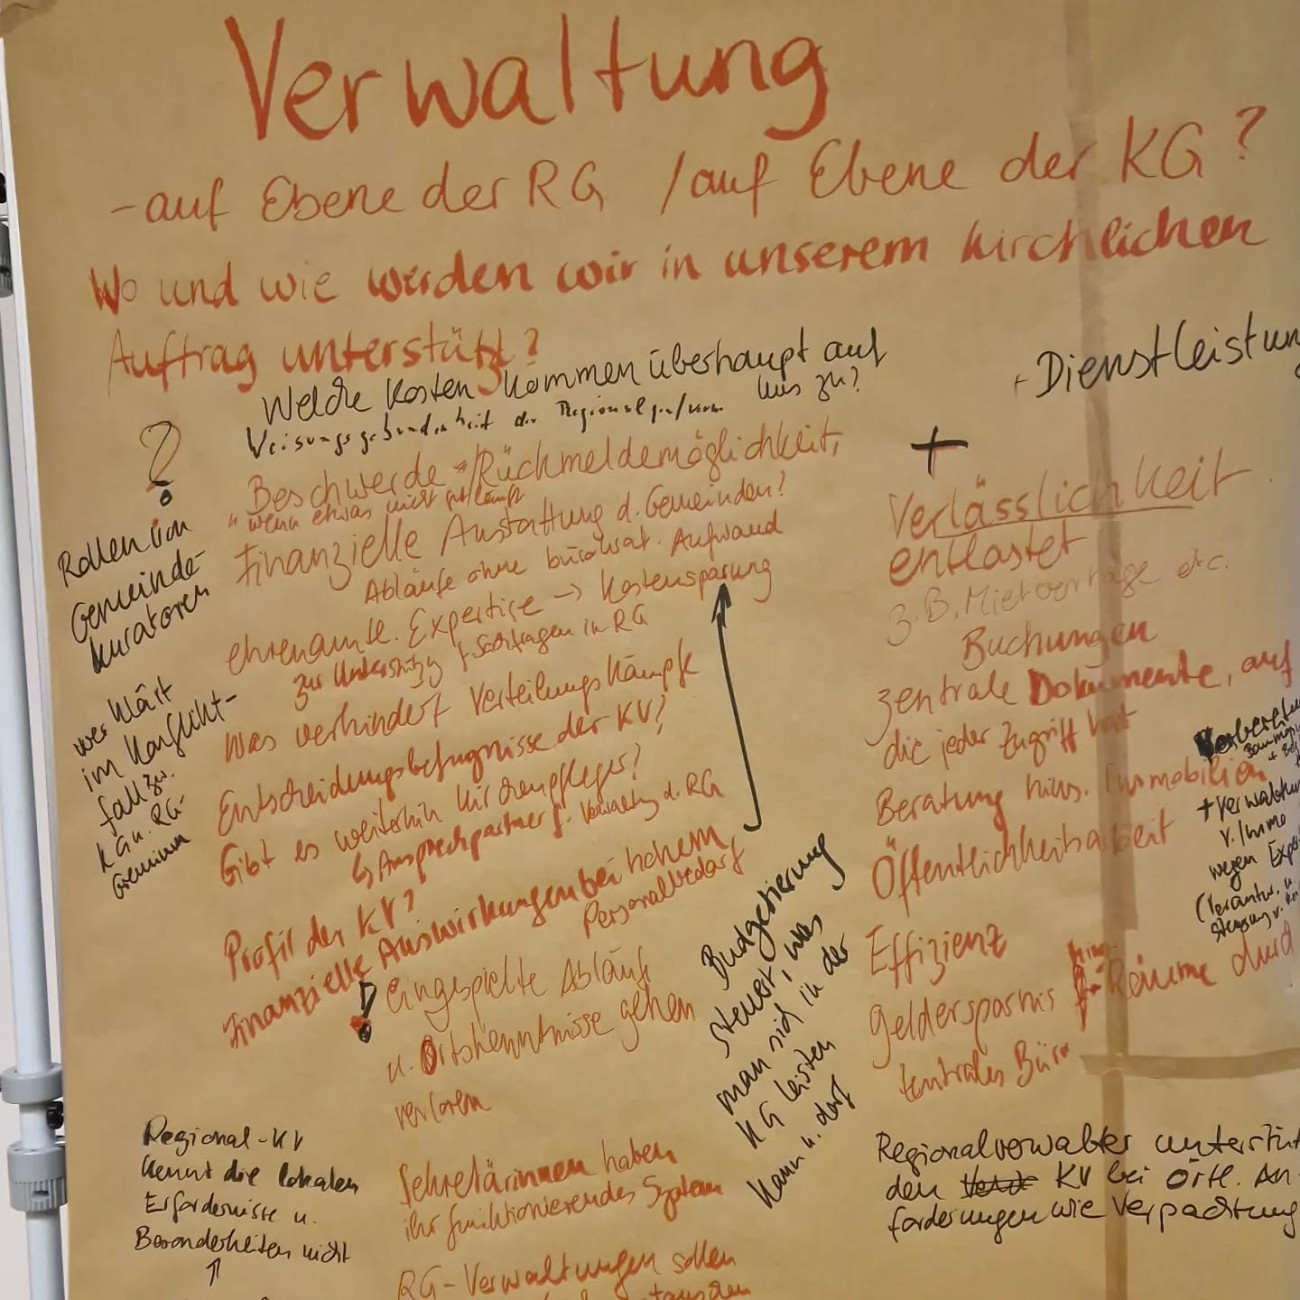 Verwaltung
- auf Ebene der RG / auf Ebene der KG?
Wo und wie werden wir in unserem kirchlichen
Auftrag unterstützt?
Welche Kosten kommen überhaupt auf
uns zu?
Weisungsgebundenheit der
?
Beschwerde - / Rückmeldemöglichkeit,
"wenn etwas nicht gut läuft
Finanzielle Ausstattung d. Gemeinden?
Abläufe ohne bürokrat. Aufwand
ehrenamtl. Expertise → Kostensparung
zur Unterstützg f. Sachfragen in RG
Was verhindert Verteilungskämpfe
Entscheidungsbefugnisse der KV?
Gibt es weiterhin Kirchenpfleger?
↳ Ansprechpartner f. Verwaltg d. RG
Profil der KV?
finanzielle Auswirkungen bei hohem
Personalbedarf
! eingespielte Abläufe
u. Ortskenntnisse gehen
verloren
Sekretärinnen haben
ihr funktionierendes System
RG-Verwaltungen sollen
Rollen von
Gemeinde-
kuratoren
wer klärt
im Konflikt-
fall zw.
KG u. RG-
Gremium
Regional-KV
kennt die lokalen
Erfordernisse u.
Besonderheiten nicht
↑
Budgetierung
steuert, was
man sich in der
KG leisten
kann u. darf
+ Dienstleistun
+
Verlässlichkeit
entlastet
z.B. Mietverträge etc.
Buchungen
zentrale Dokumente, auf
die jeder Zugriff hat
Beratung hins. Immobilien
Öffentlichkeitsarbeit
Effizienz
Geldersparnis
Räume durch
zentrales Büro
+ Verwaltun
v. Immo
wegen Exper
(Verantw. u.
Regionalverwalter unterstüt
den KV bei örtl. An-
forderungen wie Verpachtung